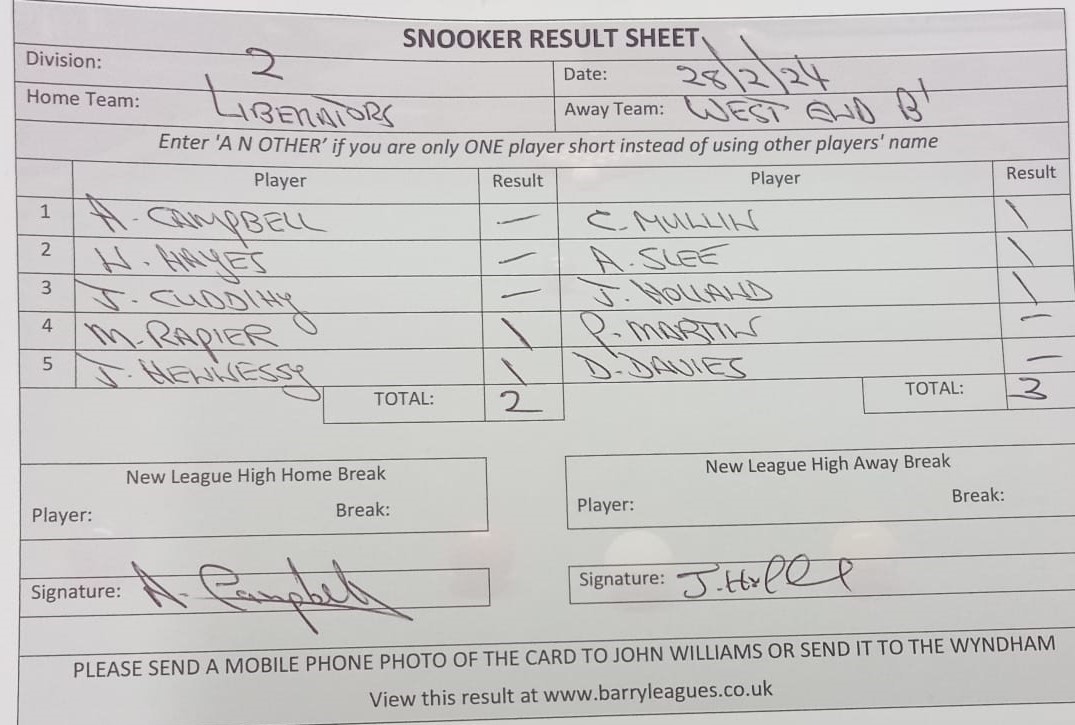 SNOOKER RESULT SHEET
Division: 2 Date: 28/2/24
Home Team: LIBERATORS Away Team: WEST END 'B'
Enter 'A N OTHER' if you are only ONE player short instead of using other players' name
Player Result Player Result
1 A. CAMPBELL — C. MULLIN 1
2 N. HAYES — A. SLEE 1
3 J. CUDDIHY — J. HOLLAND 1
4 M. RAPIER 1 P. MARTIN —
5 J. HENNESSY 1 D. DAVIES —
TOTAL: 2 TOTAL: 3
New League High Home Break New League High Away Break
Player: Break: Player: Break:
Signature: A. Campbell Signature: J. Holl
PLEASE SEND A MOBILE PHONE PHOTO OF THE CARD TO JOHN WILLIAMS OR SEND IT TO THE WYNDHAM
View this result at www.barryleagues.co.uk